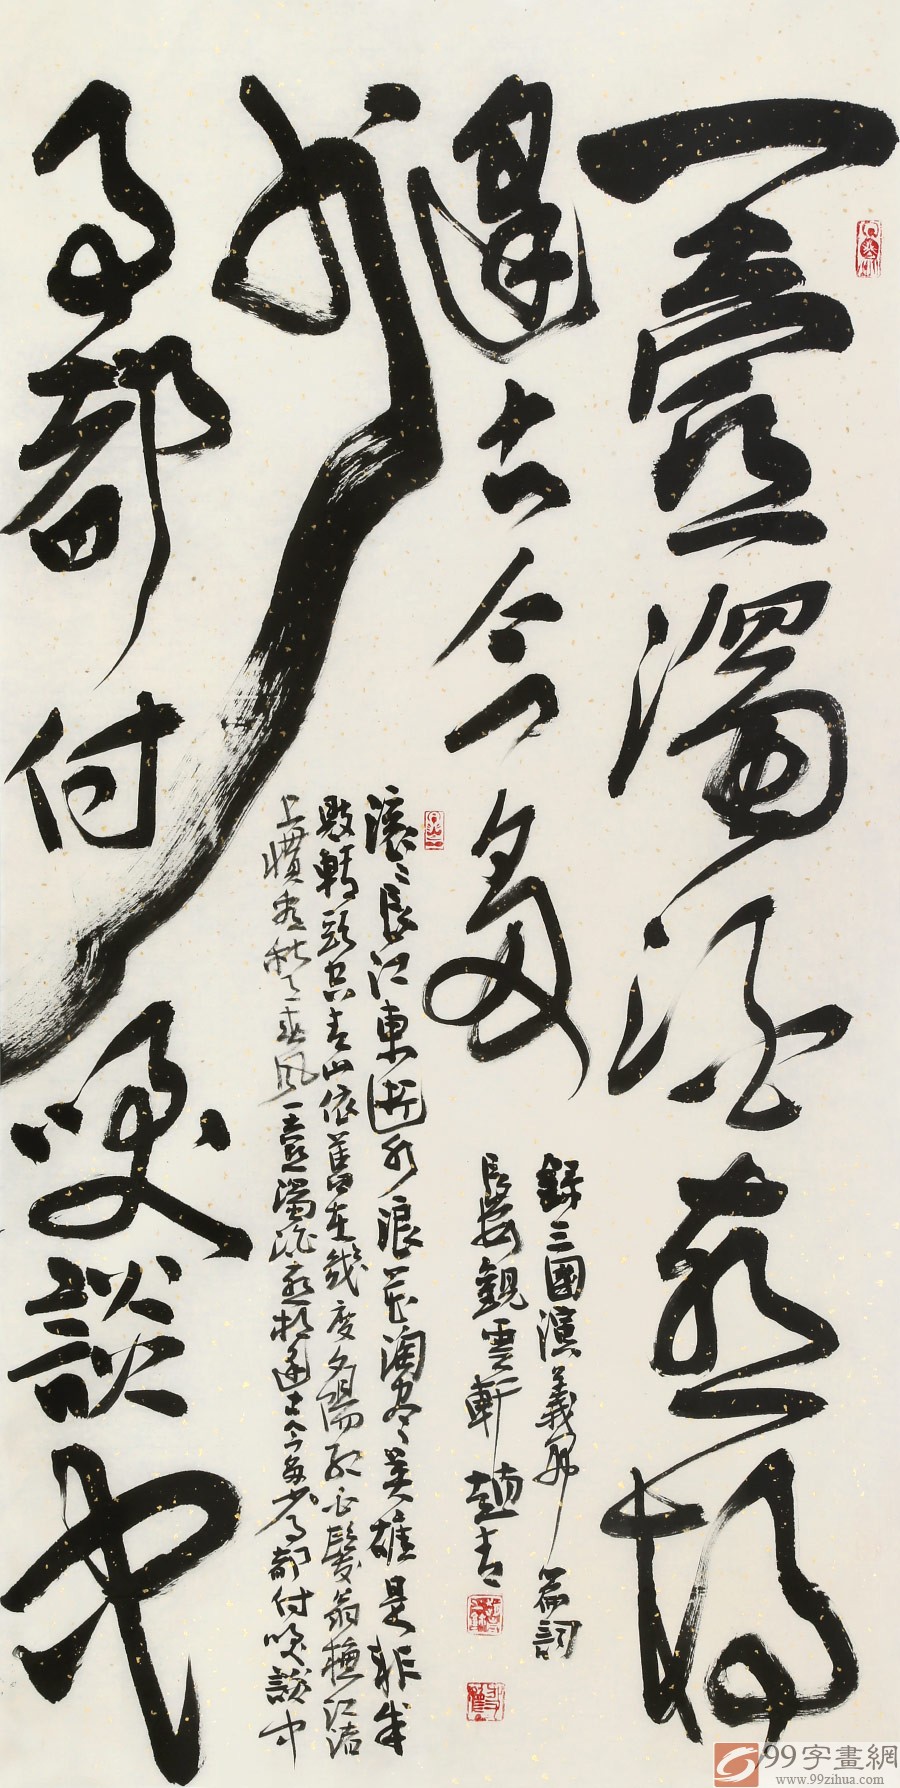 一壺濁酒喜相
逢古今多
少
事都付笑談中
滾〻長江東逝水浪花淘盡英雄是非成
敗轉頭空青山依舊在幾度夕陽紅白髮翁樵江渚
上慣看秋月春風一壺濁酒喜相逢古今多少事都付笑談中
錄三國演義開篇詞
長安觀雲軒趙青
99字畫網
www.99zihua.com